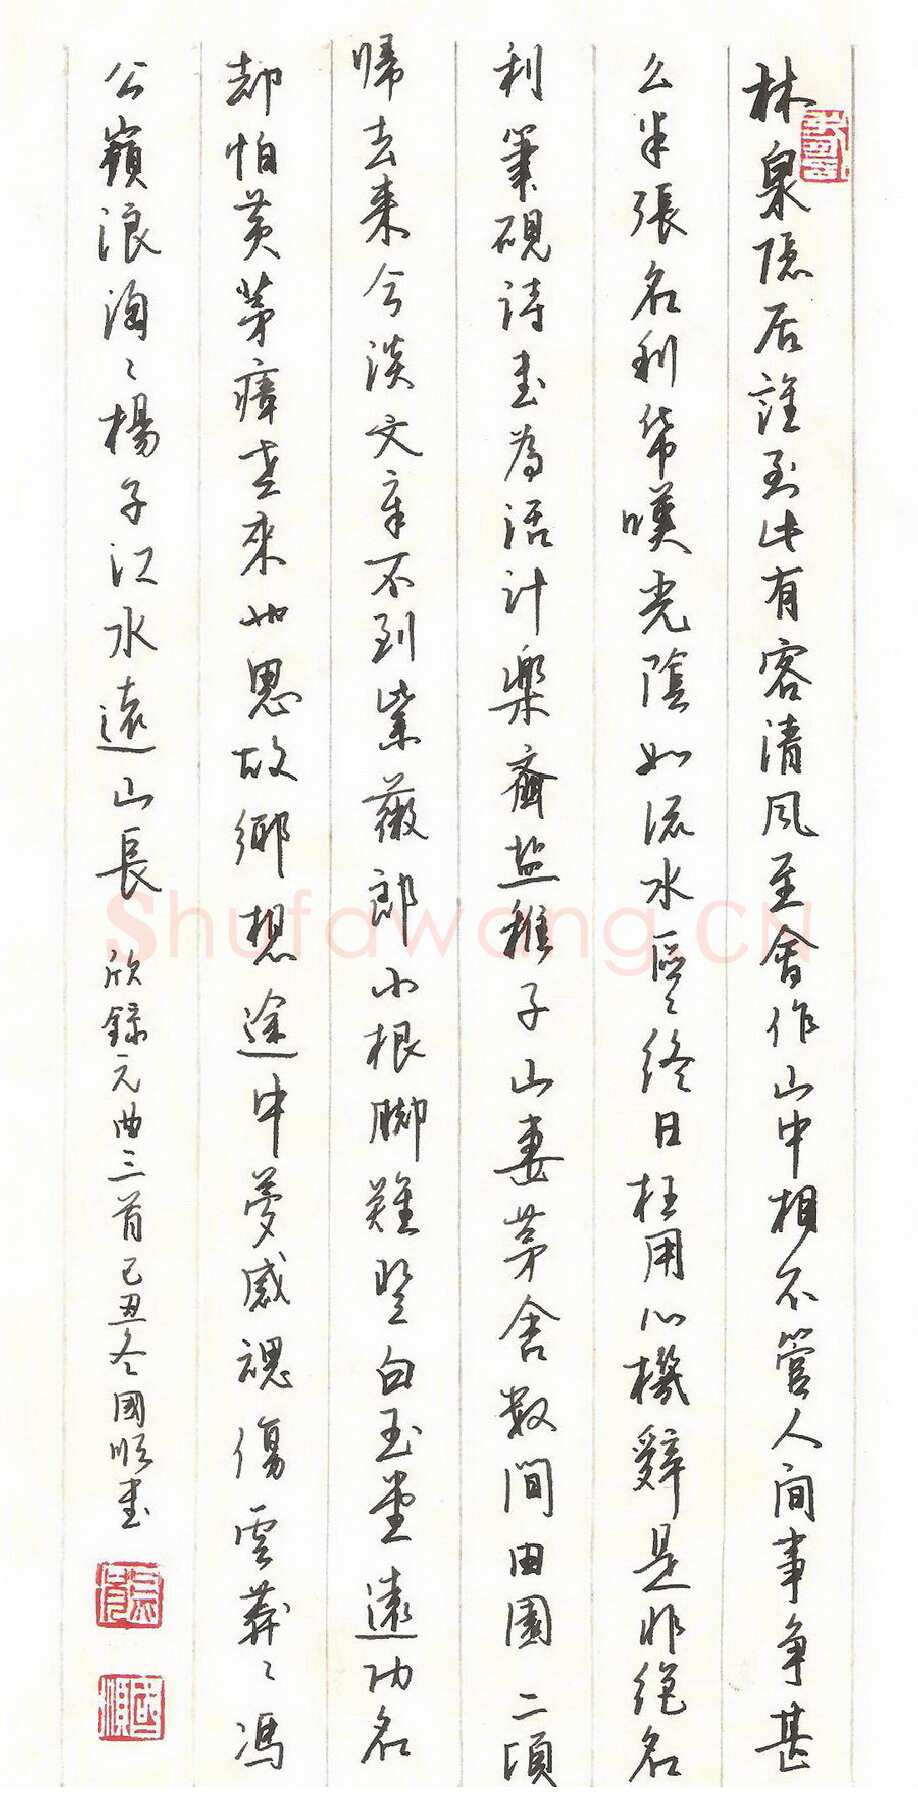 林泉隱居誰到此有客清風至會作山中相不管人间事争甚
么半張名利帋嘆光陰如流水區〻終日枉用心機辭是非绝名
利筆硯詩书為活计樂齑盐稚子山妻茅舍数間田園二頃
歸去来今淡文章不到紫薇郎小根脚難登白玉堂遠功名
却怕黄茅瘴老來也思故鄉想途中夢感魂傷雲莽〻馮
公嶺浪淘〻楊子江水遠山長 欣録元曲三首己丑冬國順书
國順
Shufawang.CN